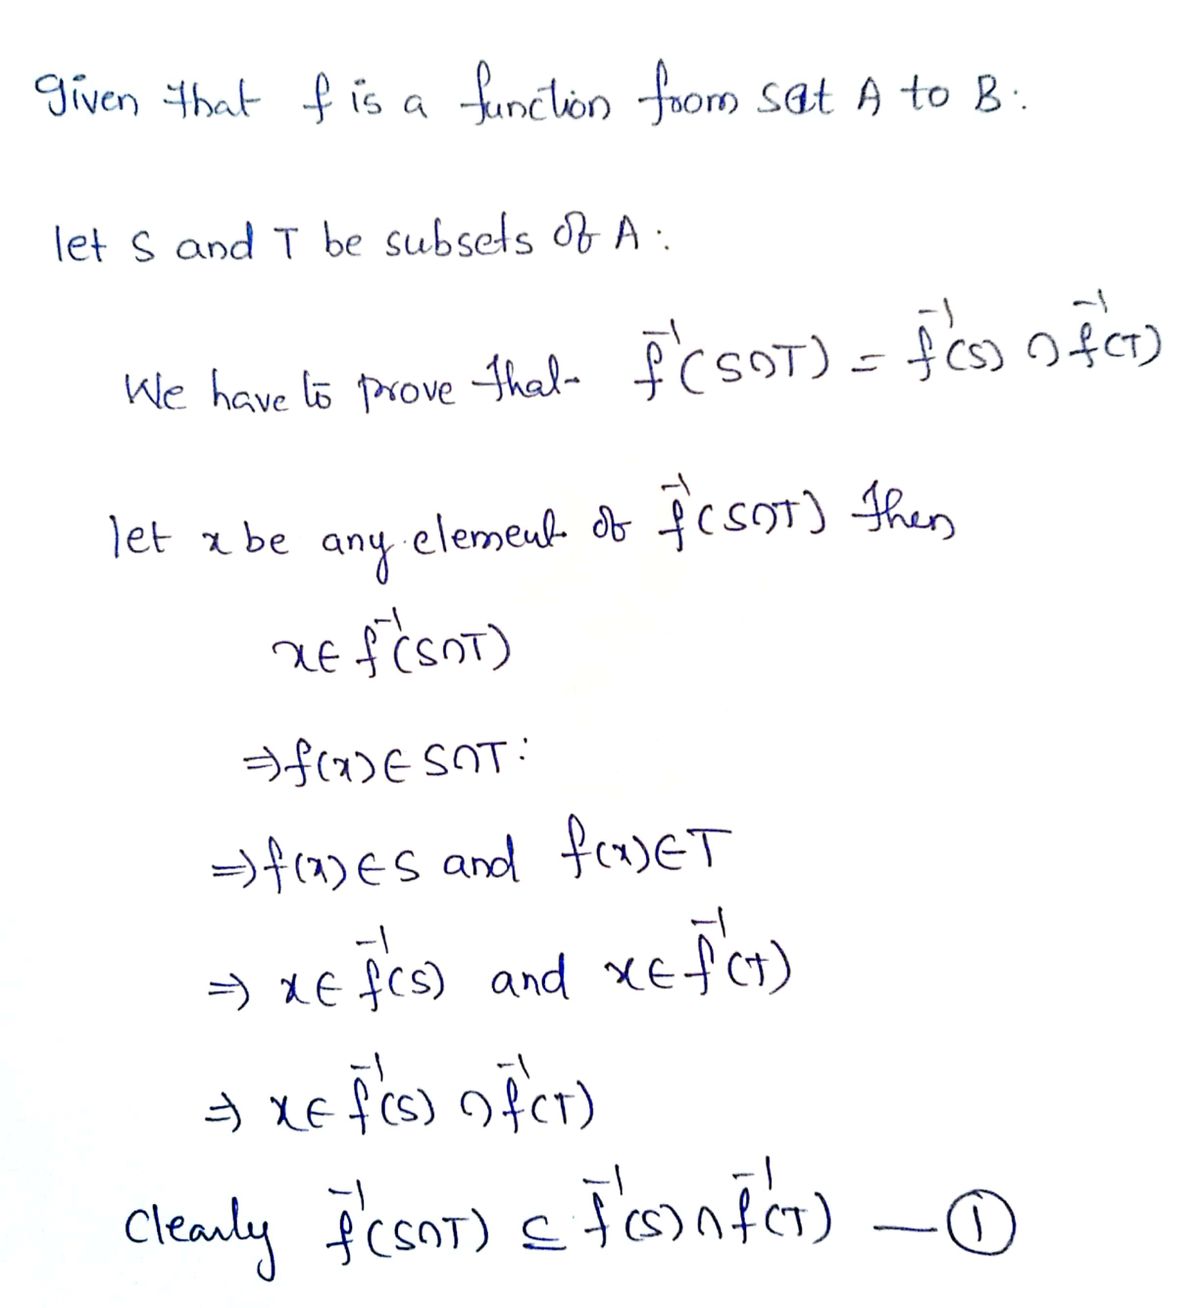 given that f is a function from set A to B:
let S and T be subsets of A:
We have to prove that f⁻¹(S∩T) = f⁻¹(S) ∩ f⁻¹(T)
let x be any element of f⁻¹(S∩T) then
x∈ f⁻¹(S∩T)
⇒f(x)∈ S∩T:
⇒f(x)∈S and f(x)∈T
⇒ x∈ f⁻¹(S) and x∈ f⁻¹(T)
⇒ x∈ f⁻¹(S) ∩ f⁻¹(T)
Clearly f⁻¹(S∩T) ⊆ f⁻¹(S)∩f⁻¹(T) —①